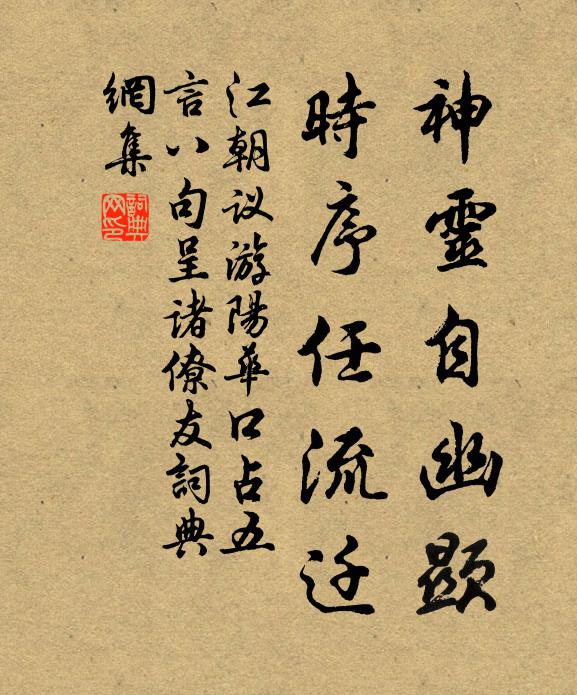 神靈自幽顯
時序任流迁
江朝议游陽華口占五
言八句呈诸僚友詞典
網集
詞典
网印